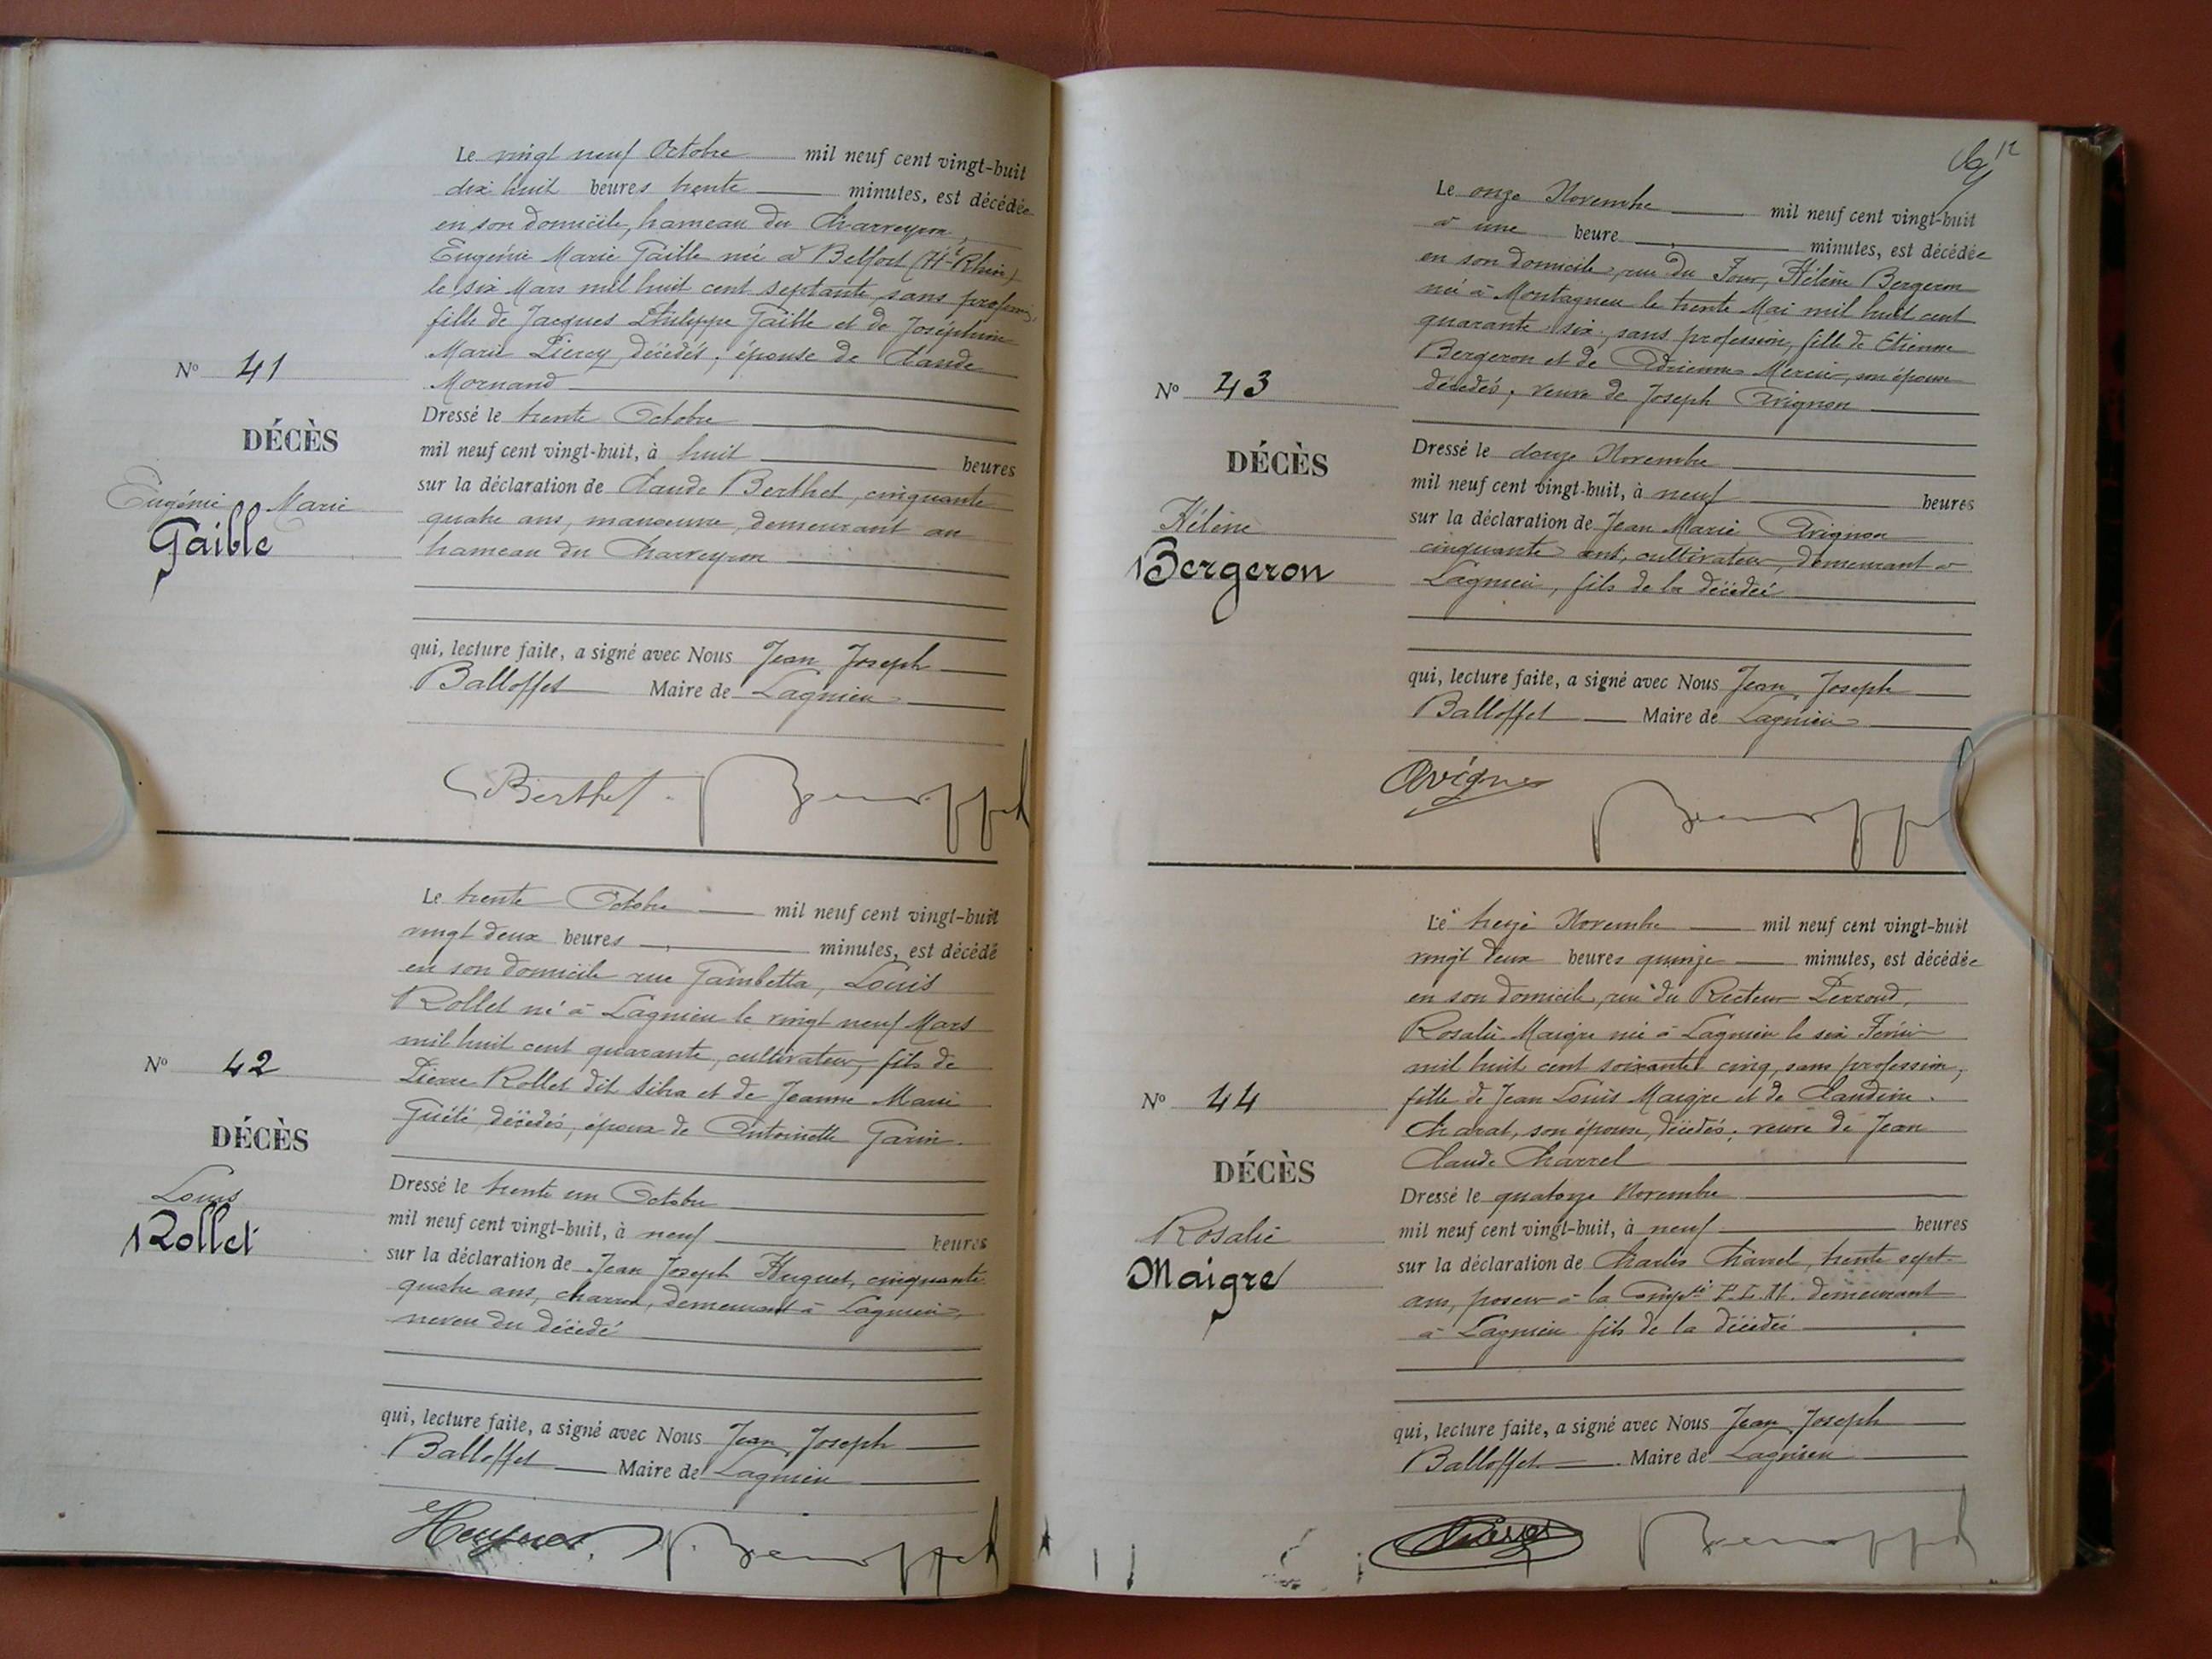 Le vingt neuf Octobre mil neuf cent vingt-huit
dix huit heures trente minutes, est décédée
en son domicile, hameau du Charreyron,
Eugénie Marie Gaible née à Belfort (Ht Rhin)
le six Mars mil huit cent septante, sans profession,
fille de Jacques Philippe Gaible et de Joséphine
Marie Pierey, décédés; épouse de Claude
Mornand
Nº 41
DÉCÈS
Eugénie Marie
Gaible
Dressé le trente Octobre
mil neuf cent vingt-huit, à huit heures
sur la déclaration de Claude Berthet, cinquante
quatre ans, manoeuvre, demeurant au
hameau du Charreyron
qui, lecture faite, a signé avec Nous Jean Joseph
Balloffet Maire de Lagnieu
Berthet
Le trente Octobre mil neuf cent vingt-huit
vingt deux heures minutes, est décédé
en son domicile rue Gambetta, Louis
Rollet né à Lagnieu le vingt neuf Mars
mil huit cent quarante, cultivateur, fils de
Pierre Rollet dit Silva et de Jeanne Marie
décédés, époux de Antoinette Garin.
Nº 42
DÉCÈS
Louis
Rollet
Dressé le trente un Octobre
mil neuf cent vingt-huit, à neuf heures
sur la déclaration de Jean Joseph Huguet, cinquante
quatre ans, charron, demeurant à Lagnieu,
neveu du décédé
qui, lecture faite, a signé avec Nous Jean Joseph
Balloffet Maire de Lagnieu
12
Le onze Novembre mil neuf cent vingt-huit
à une heure minutes, est décédée
en son domicile, rue du Four, Hélène Bergeron
née à Montagneu le trente Mai mil huit cent
quarante six, sans profession, fille de Etienne
Bergeron et de Adrienne Mercier, son épouse
décédés; veuve de Joseph Avignon
Nº 43
DÉCÈS
Hélène
Bergeron
Dressé le douze Novembre
mil neuf cent vingt-huit, à neuf heures
sur la déclaration de Jean Marie Avignon
cinquante ans, cultivateur, demeurant à
Lagnieu, fils de la décédée
qui, lecture faite, a signé avec Nous Jean Joseph
Balloffet Maire de Lagnieu
Avignon
Le treize Novembre mil neuf cent vingt-huit
vingt deux heures quinze minutes, est décédée
en son domicile, rue du Recteur Perroud,
Rosalie Maigre née à Lagnieu le six Février
mil huit cent soixante cinq, sans profession,
fille de Jean Louis Maigre et de Claudine
Charat, son épouse, décédés; veuve de Jean
Claude Charrel
Nº 44
DÉCÈS
Rosalie
Maigre
Dressé le quatorze Novembre
mil neuf cent vingt-huit, à neuf heures
sur la déclaration de Charles Charrel, trente sept
ans, poseur à la Compie P.L.M. demeurant
à Lagnieu fils de la décédée
qui, lecture faite, a signé avec Nous Jean Joseph
Balloffet Maire de Lagnieu